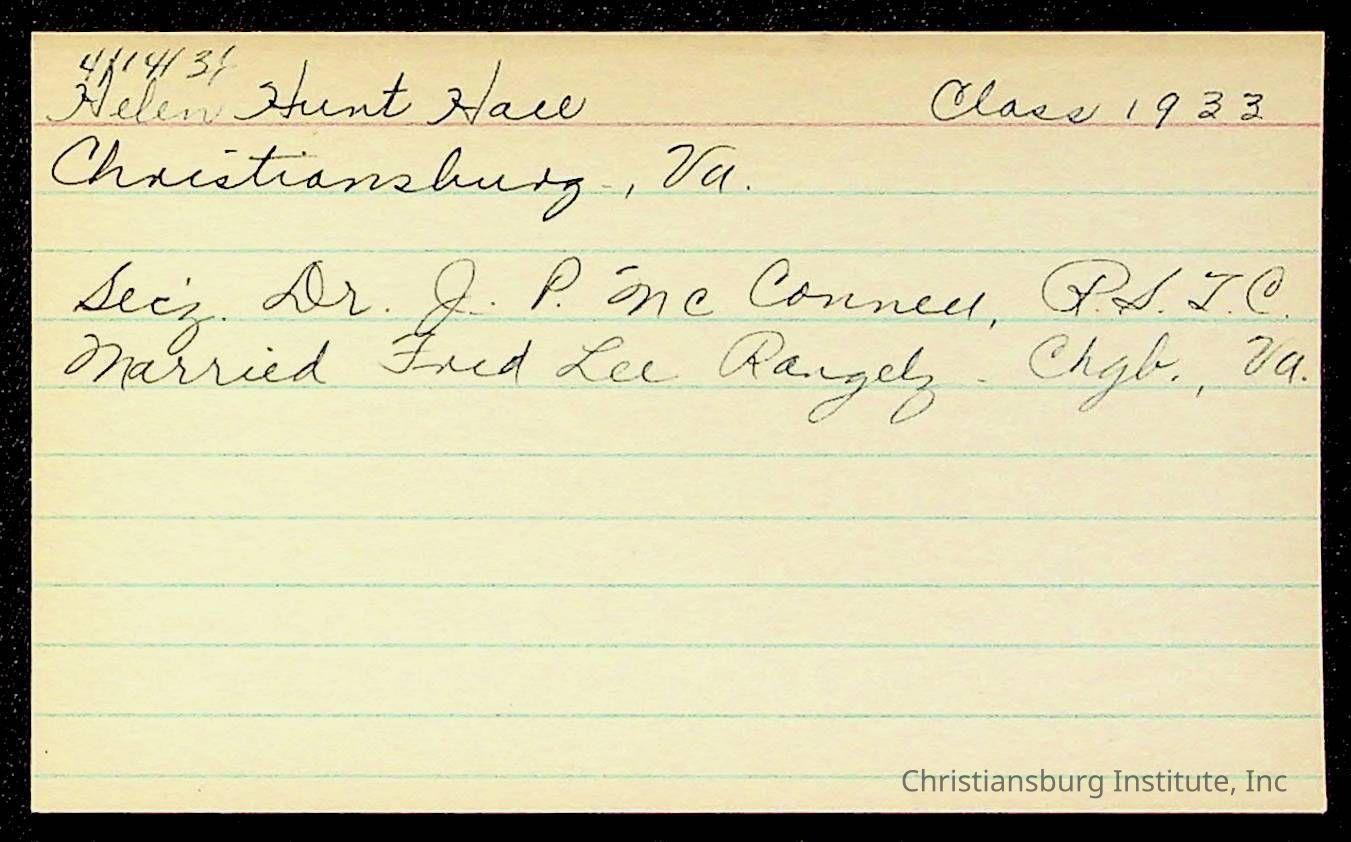 4/14/31
Helen Hunt Hall Class 1933
Christiansburg, Va.
Sec'y. Dr. J. P. McConnell, R.S.T.C.
Married Fred Lee Rangely - Chgb., Va.
Christiansburg Institute, Inc